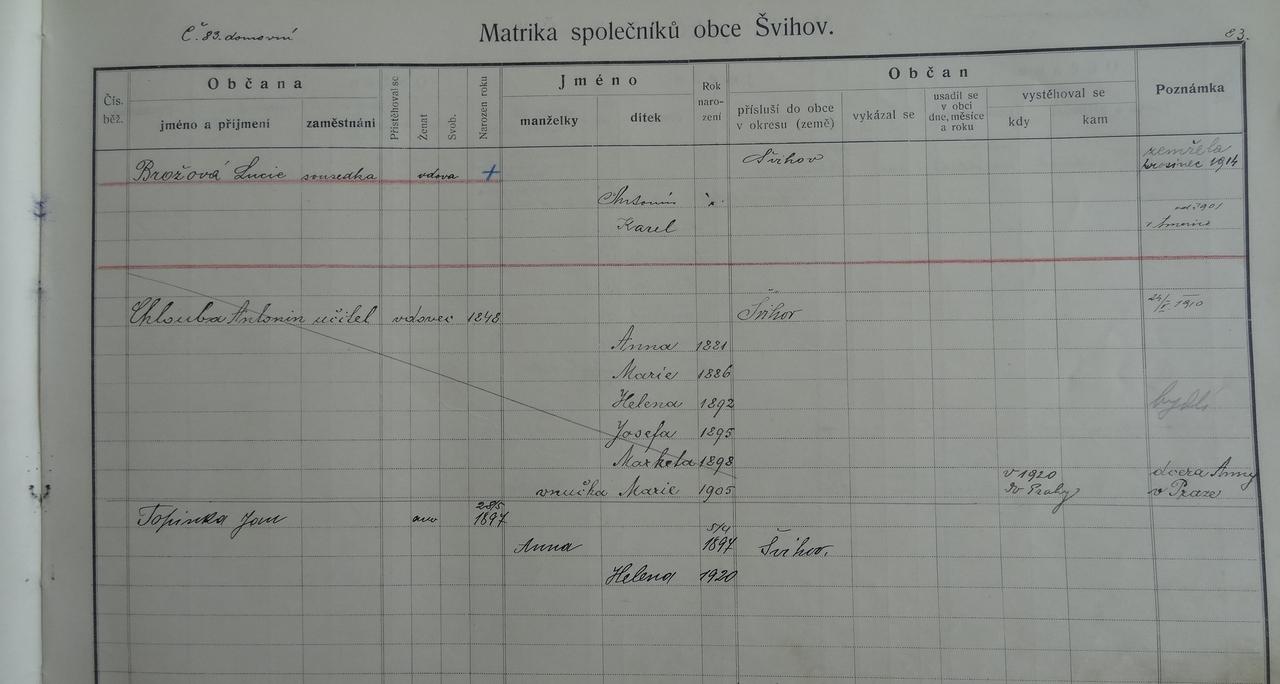 Č. 83. domovní
Matrika společníků obce Švihov.
83.
Čís. běž.
Občana
jméno a příjmení
zaměstnání
Přistěhoval se
Ženat
Svob.
Narozen roku
Jméno
manželky
dítek
Rok naro-zení
Občan
přísluší do obce v okresu (země)
vykázal se
usadil se v obci dne, měsíce a roku
vystěhoval se
kdy
kam
Poznámka
Brožová Lucie sousedka vdova + Švihov zemřela prosinec 1914
Antonín
Karel v Americe
Chlouba Antonin učitel vdovec 1848 Švihov 1910
Anna 1881
Marie 1886
Helena 1892 bydlí
Josefa 1895
Marketa 1898 v 1920 dcera Anny
vnučka Marie 1905 do Prahy v Praze
Topinka Jan ano 28/5 1897
Anna 5/4 1897 Švihov.
Helena 1920